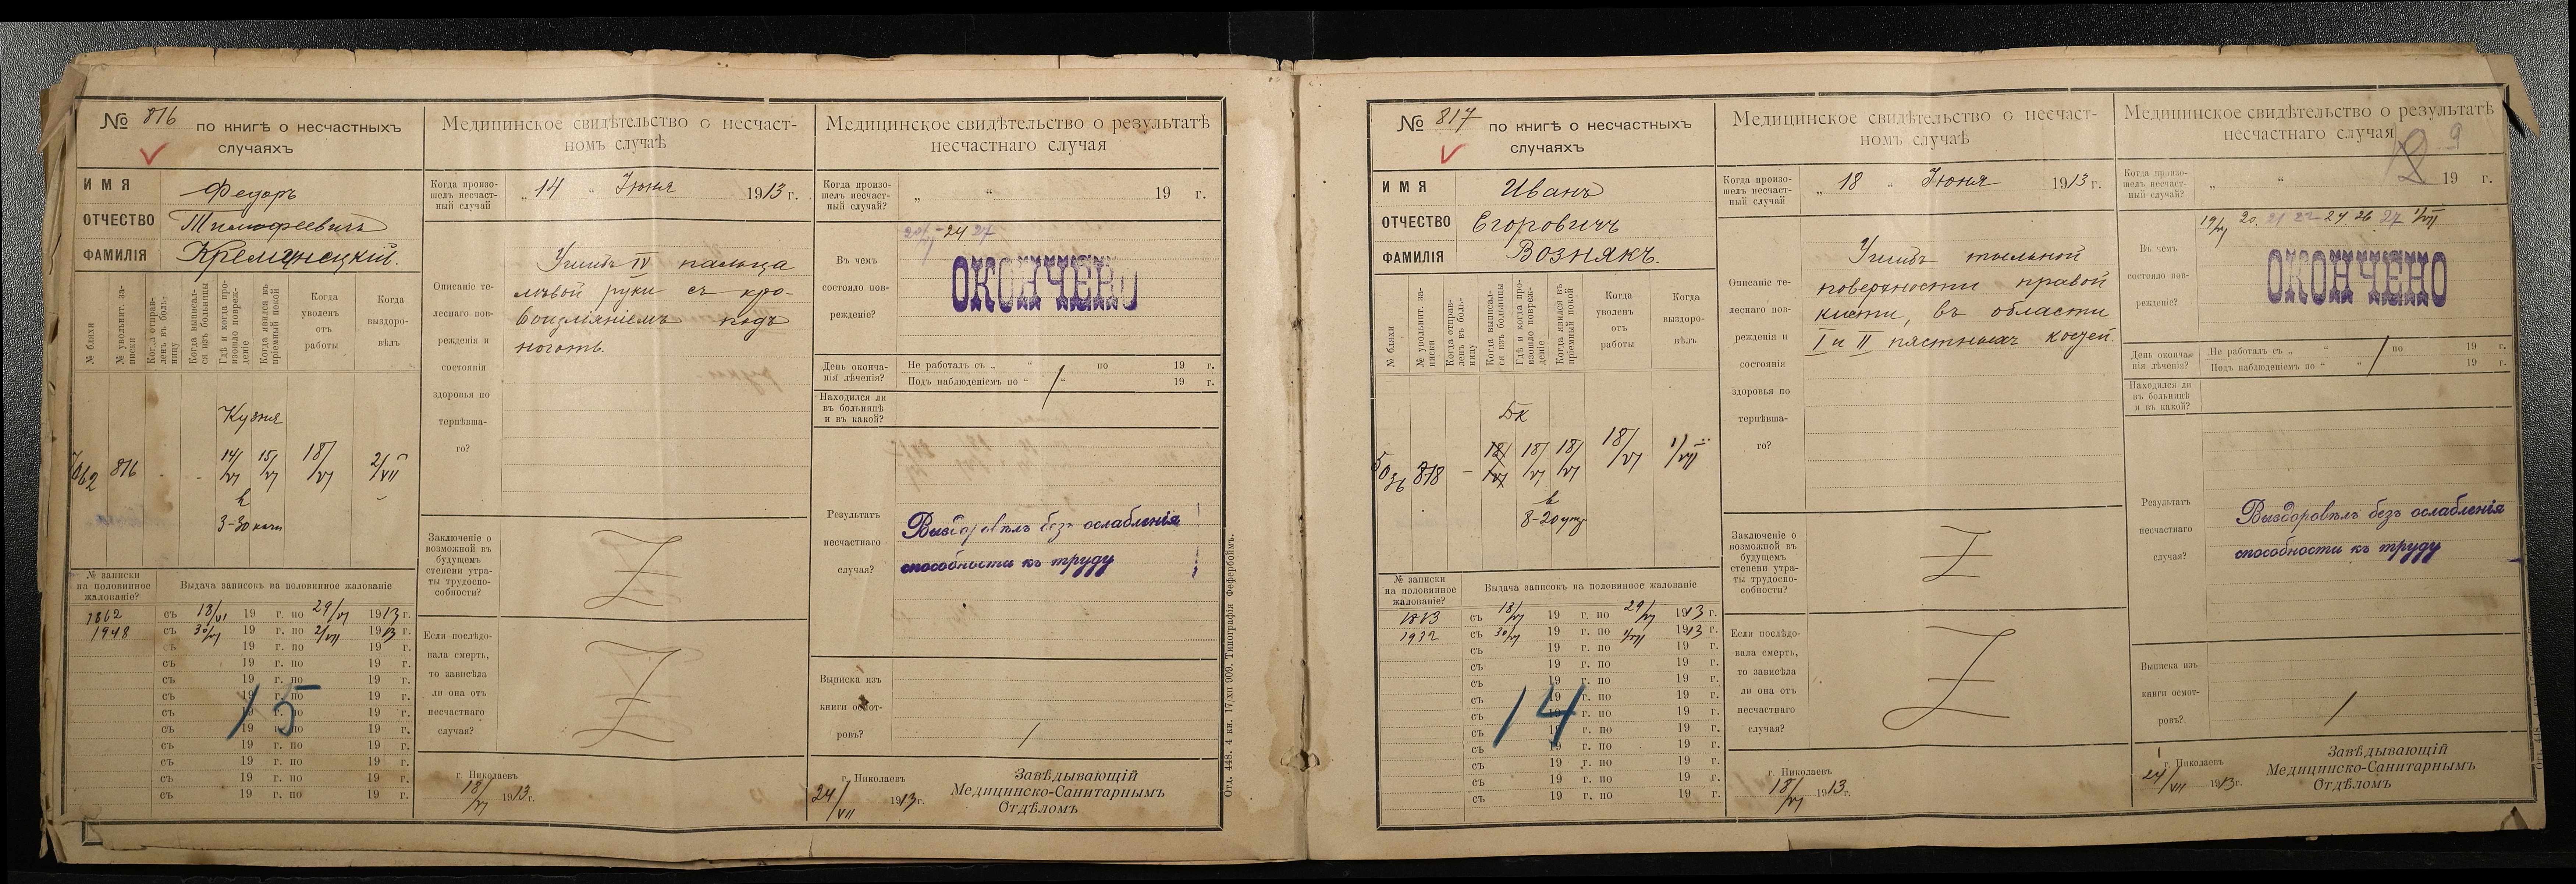 № 816 по книгѣ о несчастныхъ
случаяхъ
ИМЯ Федоръ
ОТЧЕСТВО Тимофеевичъ
ФАМИЛІЯ Кремянецкій.
№ бляхи
№ увольнит. записки
Когда отправленъ въ больницу
Когда выписался изъ больницы
Гдѣ и когда произошло поврежденіе
Когда явился въ пріемный покой
Когда уволенъ отъ работы
Когда выздоровѣлъ
Кузня
7062 816 - - 14/VI 15/VI 18/VI 2/VII
в
3-30 ночи
№ записки на половинное жалованіе?
Выдача записокъ на половинное жалованіе
1862 съ 18/VI 19 г. по 29/VI 1913 г.
1948 съ 30/VI 19 г. по 2/VII 1913 г.
съ 19 г. по 19 г.
съ 19 г. по 19 г.
съ 19 г. по 19 г.
съ 19 г. по 19 г.
съ 19 г. по 19 г.
съ 19 г. по 19 г.
съ 19 г. по 19 г.
съ 19 г. по 19 г.
съ 19 г. по 19 г.
съ 19 г. по 19 г.
15
Медицинское свидѣтельство о несчаст-
номъ случаѣ
Когда произо-
шелъ несчаст-
ный случай
„ 14 „ Іюня 1913 г.
Описаніе те-
леснаго пов-
режденія и
состоянія
здоровья по
терпѣвша-
го?
Ушибъ IV пальца
лѣвой руки съ кро-
воизліяніемъ подъ
ноготь.
Заключеніе о
возможной въ
будущемъ
степени утра-
ты трудоспо-
собности?
Если послѣдо-
вала смерть,
то зависѣла
ли она отъ
несчастнаго
случая?
г. Николаевъ
18/VI 1913 г.
Медицинское свидѣтельство о результатѣ
несчастнаго случая
Когда произо-
шелъ несчаст-
ный случай?
„ “ 19 г.
Въ чемъ
состояло пов-
режденіе?
24 27
ОКОНЧЕНО
День оконча-
нія лѣченія?
Не работалъ съ „ “ по 19 г.
Подъ наблюденіемъ по “ “ 19 г.
Находился ли
въ больницѣ
и въ какой?
Результатъ
несчастнаго
случая?
Выздоровѣлъ безъ ослабленія
способности къ труду
Выписка изъ
книги осмот-
ровъ?
г. Николаевъ
24/VII 1913 г.
Завѣдывающій
Медицинско-Санитарнымъ
Отдѣломъ
Отд. 448. 4 кн. 17/XII 909. Типографія Фефербоймъ.
№ 817 по книгѣ о несчастныхъ
случаяхъ
ИМЯ Иванъ
ОТЧЕСТВО Егоровичъ
ФАМИЛІЯ Вознякъ.
№ бляхи
№ увольнит. записки
Когда отправленъ въ больницу
Когда выписался изъ больницы
Гдѣ и когда произошло поврежденіе
Когда явился въ пріемный покой
Когда уволенъ отъ работы
Когда выздоровѣлъ
5036 818 - 18/VI 18/VI 18/VI 18/VI 1/VII
в
8-20 утр.
№ записки на половинное жалованіе?
Выдача записокъ на половинное жалованіе
1863 съ 18/VI 19 г. по 29/VI 1913 г.
1932 съ 30/VI 19 г. по 1/VII 1913 г.
съ 19 г. по 19 г.
съ 19 г. по 19 г.
съ 19 г. по 19 г.
съ 19 г. по 19 г.
съ 19 г. по 19 г.
съ 19 г. по 19 г.
съ 19 г. по 19 г.
съ 19 г. по 19 г.
съ 19 г. по 19 г.
съ 19 г. по 19 г.
14
Медицинское свидѣтельство о несчаст-
номъ случаѣ
Когда произо-
шелъ несчаст-
ный случай
„ 18 „ Іюня 1913 г.
Описаніе те-
леснаго пов-
режденія и
состоянія
здоровья по
терпѣвша-
го?
Ушибъ тыльной
поверхности правой
кисти, въ области
I и II пястныхъ костей.
Заключеніе о
возможной въ
будущемъ
степени утра-
ты трудоспо-
собности?
Если послѣдо-
вала смерть,
то зависѣла
ли она отъ
несчастнаго
случая?
г. Николаевъ
18/VI 1913 г.
Медицинское свидѣтельство о результатѣ
несчастнаго случая
9
Когда произо-
шелъ несчаст-
ный случай?
„ “ 19 г.
Въ чемъ
состояло пов-
режденіе?
19/VI 20. 21 22 24 26 27 1/VII
ОКОНЧЕНО
День оконча-
нія лѣченія?
Не работалъ съ „ “ по 19 г.
Подъ наблюденіемъ по “ “ 19 г.
Находился ли
въ больницѣ
и въ какой?
Результатъ
несчастнаго
случая?
Выздоровѣлъ безъ ослабленія
способности къ труду
Выписка изъ
книги осмот-
ровъ?
г. Николаевъ
24/VII 1913 г.
Завѣдывающій
Медицинско-Санитарнымъ
Отдѣломъ